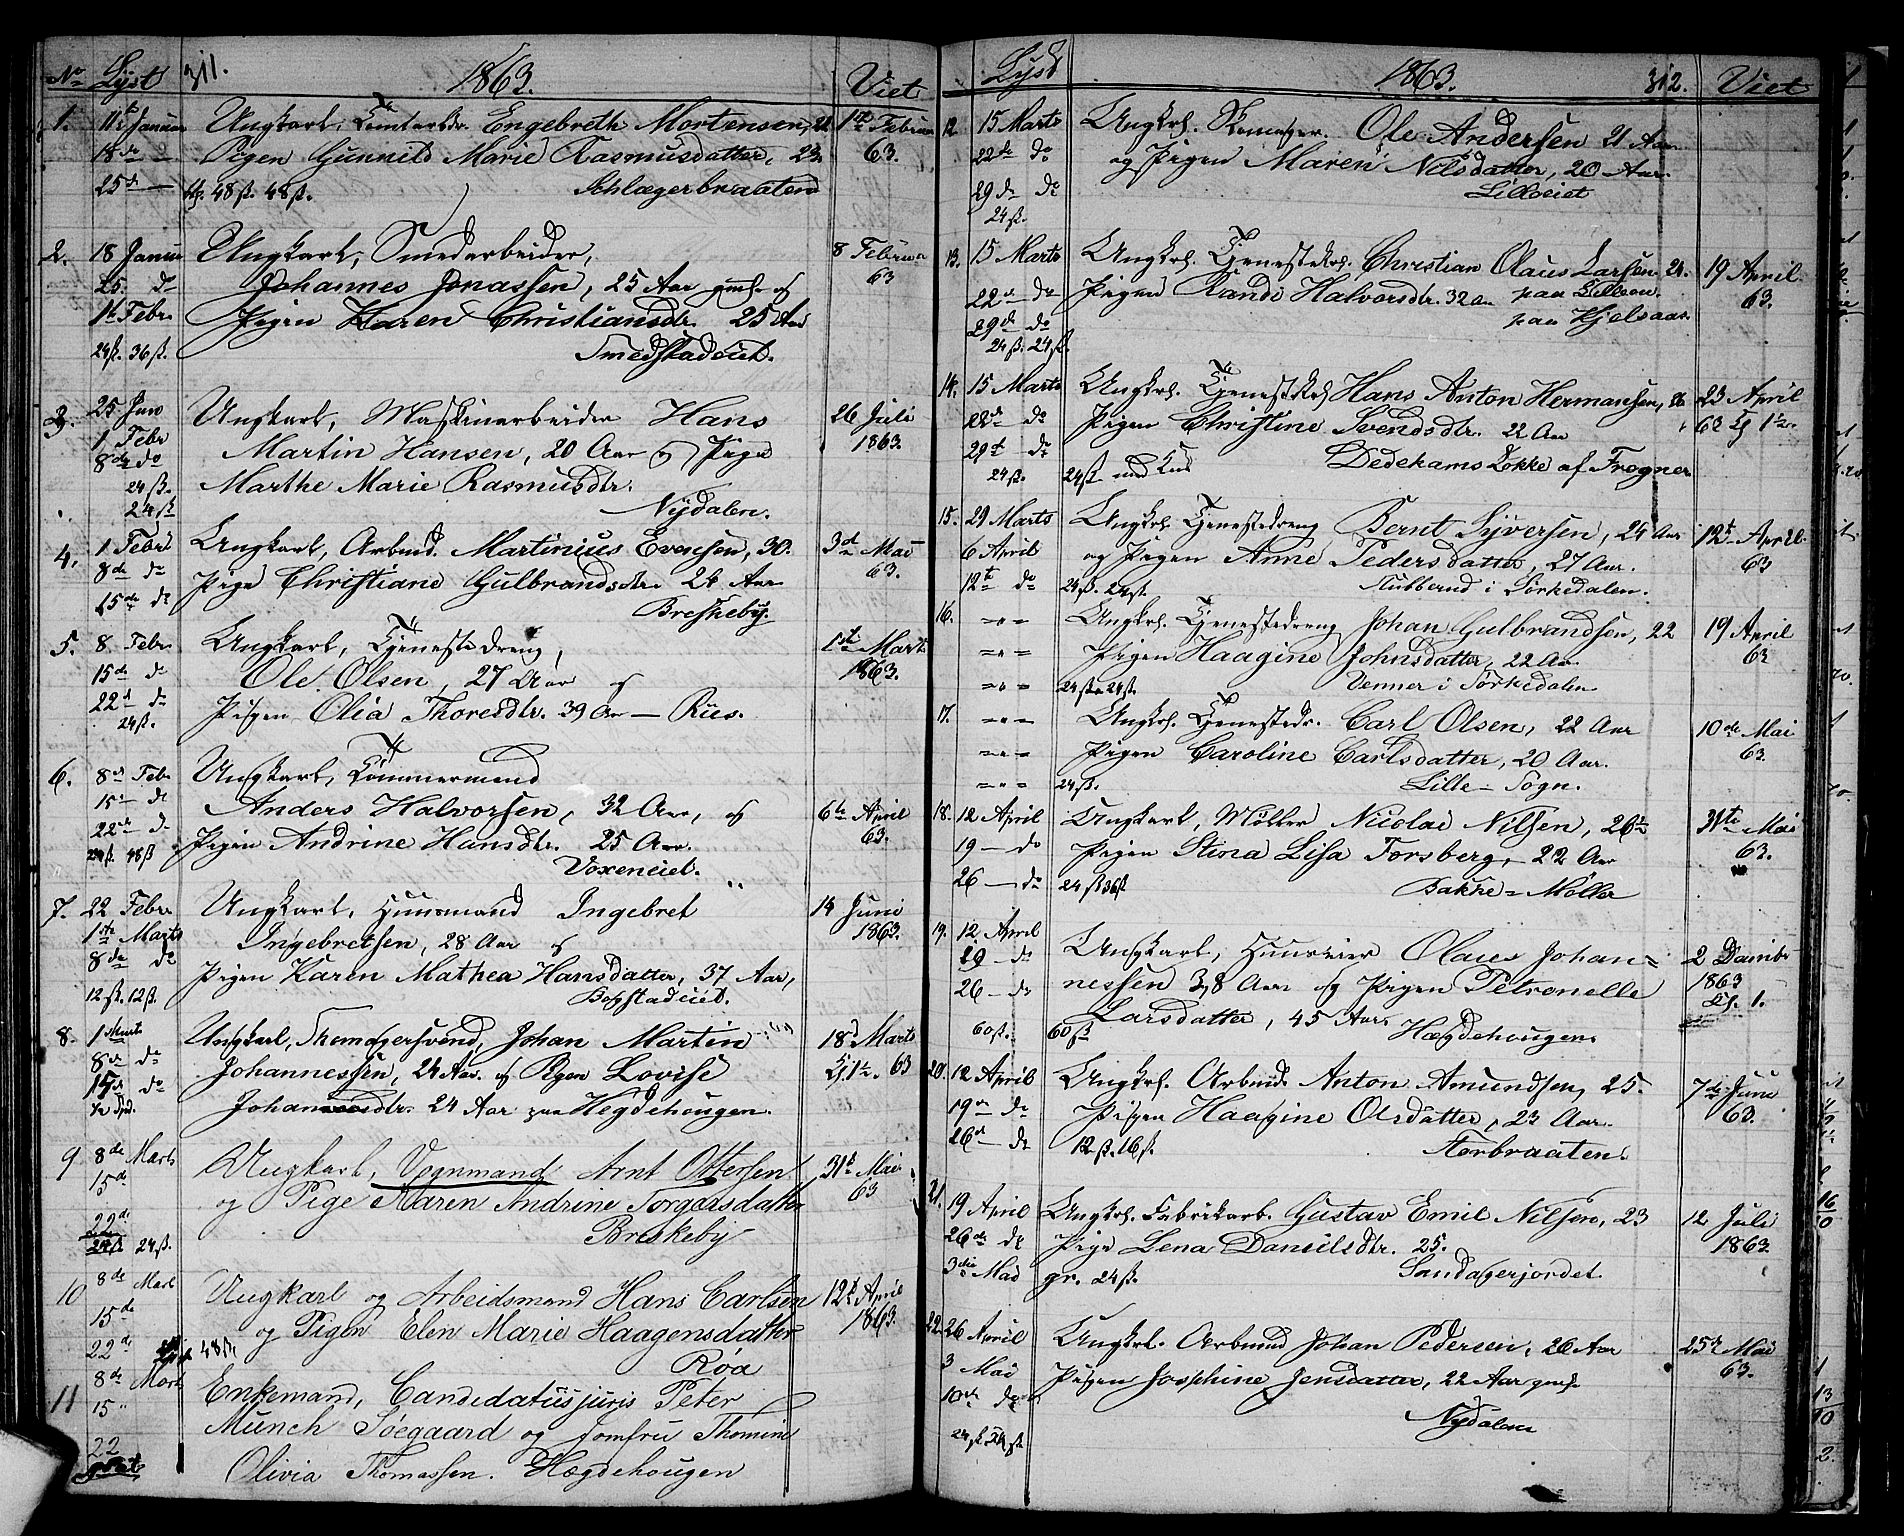 No Lyst 311. 1863. Viet
1. 11te Januar Ungkarl, Engebreth Mortensen, 1ste Februar
18 de Pigen Gunnild Marie Rasmusdatter, 23 63.
25 d 48 ß. 48 ß. Schlægerbraaten
2. 18 Januar Ungkarl, Smedarbeider, 8 Februar
25. do Johannes Jonassen, 25 Aar og 63
1ste Febr Pigen Karen Christiansdtr. 25 Aar
24 ß. 36 ß. Smedstadeiet.
3. 25 Jan Ungkarl, Maskinarbeider Hans 26 Juli
1 Febr Martin Hansen, 20 Aar og Pige 1863.
8de do Marthe Marie Rasmusdtr.
24 ß.
24 ß Nydalen.
4. 1 Febr Ungkarl, Arbmd. Martinius Evensen, 30. 3de Mai
8de do Pige Christiane Gulbrandsdtr. 24 Aar 63.
15de do Breskeby.
5. 8 Febr Ungkarl, Tjenestedreng, 1ste Marts
15de do Ole Olsen, 27 Aar og 1863.
22d do Pigen Olia Thoresdtr. 39 Aar — Riis.
24 ß.
6. 8de Febr Ungkarl, Tømmermand
15 do Anders Halvorsen, 32 Aar, og 6te April
22de do Pigen Andrine Hansdtr. 25 Aar. 63.
24 ß. 48 ß Voxeneiet.
7. 22 Febr Ungkarl, Huusmand Ingebret 14 Juni
1ste Marts Ingebretsen, 28 Aar og 1863.
8de do Pigen Karen Mathea Hansdatter, 37 Aar,
12 ß. 12 ß. Bogstadeiet.
8. 1 Marts Ungkarl, Johan Martin 18 Marts
8de do Johannessen, 24 Aar. og Pigen Lovise 63
15de do Johannesdtr. 24 Aar paa Hegdehougen.
9 8de Marts Ungkarl, Vognmand Arnt Ottersen 31te Mai
15de og Pige Karen Andrine Torgersdatter 63
22de Breskeby
24 ß 24 ß.
10 8de Marts Ungkarl og Arbeidsmand Hans Carlsen 12te April
15de og Pigen Elen Marie Haagensdatter 1863.
22de 48 ß. Røa
11 8de Marts Enkemand, Candidatus juris Peter
15 Munch Søegaard og Jomfru Thomine
22 Olivia Thomassen. Hægdehougen
Lyst 1863. 312. Viet
12. 15 Marts Ungkrl. Skomager. Ole Andersen 21 Aar
22de do og Pigen Maren Nilsdatter, 20 Aar.
29 d do Lilleeiet
24 ß.
13. 15 Marts Ungkrl. Christian Olaus Larsen 24. 19 April
22de do Pigen Randi Halvorsdtr. 32 paa Ullern. 63.
29de do paa Kjelsaas.
24 ß. 24 ß.
14. 15 Marts Ungkrl. Hans Anton Hermansen, 26 23 April
22de do Pigen Christine Svendsdtr. 22 Aar 63
29de do Dedehams Løkke af Frogner
24 ß. 24 ß
15. 29 Marts Ungkrl. Tjenestedreng Bernt Syversen, 24 Aar 12te April
6 April og Pigen Anne Pedersdatter, 27 Aar. 63
12te do 24 ß. 24 ß. Stubberud i Sørkedalen.
16. -"- Ungkrl. Tjenestedreng Johan Gulbrandsen, 22 19 April
="= Pigen Haagine Johnsdatter, 22 Aar. 63
="= 24 ß. 24 ß. Venner i Sørkedalen
17. -"- Ungkrl. Tjenestedr. Carl Olsen, 22 Aar 10de Mai
="= Pigen Caroline Carlsdatter, 20 Aar. 63.
="= 24 ß. Lille-Sogn.
18. 12 April Ungkarl, Møller Nicolai Nilsen, 26½ 31te Mai
19 — do Pigen Stina Lisa Forsberg, 22 Aar 63.
26 — do 24 ß 36 ß Bakke-Mølle
19. 12 April
19 — do Ungkarl, Huuseier Olaus Johan= 2
26 — do nessen 38 Aar og Pigen Petronelle 1863
60 ß. 60 ß Larsdatter, 45 Aar. Hægdehougen.
20. 12 April Ungkrl. Arbmd. Anton Amundsen, 25. 7de Juni
19de do Pigen Haagine Olsdatter, 23 Aar. 63.
26de do 12 ß. 16 ß. Torbraaten.
21. 19 April Ungkrl. Fabrikarb. Gustav Emil Nilsen, 23 12 Juli
26de do Pige Lena Danielsdtr. 25. 1863.
3die Mai gr. 24 ß. Sandagerjordet.
22. 26 April Ungkrl. Arbmd Johan Pedersen, 26 Aar 25de Mai
3 Mai Pigen Josephine Jensdatter, 22 Aar 63.
10de do Nydalen
24 ß. 24 ß.